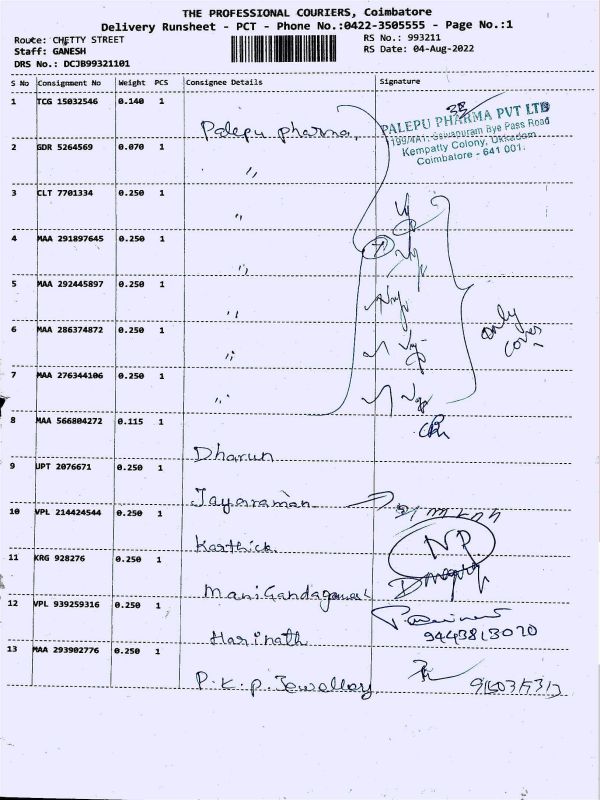 THE PROFESSIONAL COURIERS, Coimbatore
Delivery Runsheet - PCT - Phone No.:0422-3505555 - Page No.:1
Route: CHETTY STREET
Staff: GANESH
DRS No.: DCJB99321101
RS No.: 993211
RS Date: 04-Aug-2022
S No Consignment No Weight PCS Consignee Details Signature
1 TCG 15032546 0.140 1 Palepu pharma
PALEPU PHARMA PVT LTD
199/4A1, Bye Pass Road
Kempatty Colony, Ukkadam
Coimbatore - 641 001.
2 GDR 5264569 0.070 1 "
3 CLT 7701334 0.250 1 "
4 MAA 291897645 0.250 1 "
5 MAA 292445897 0.250 1 "
6 MAA 286374872 0.250 1 "
7 MAA 276344106 0.250 1 "
only
cover
8 MAA 566804272 0.115 1 Dharun
9 UPT 2076671 0.250 1 Jayaraman
10 VPL 214424544 0.250 1 Karthick NP
11 KRG 928276 0.250 1
12 VPL 939259316 0.250 1 Harinath 9443813070
13 MAA 293902776 0.250 1 P.K.P. Jewellary